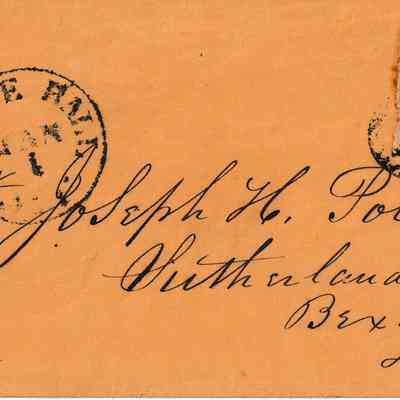 E HALL
JAN
1
Joseph H. Po
Sutherland
Bex